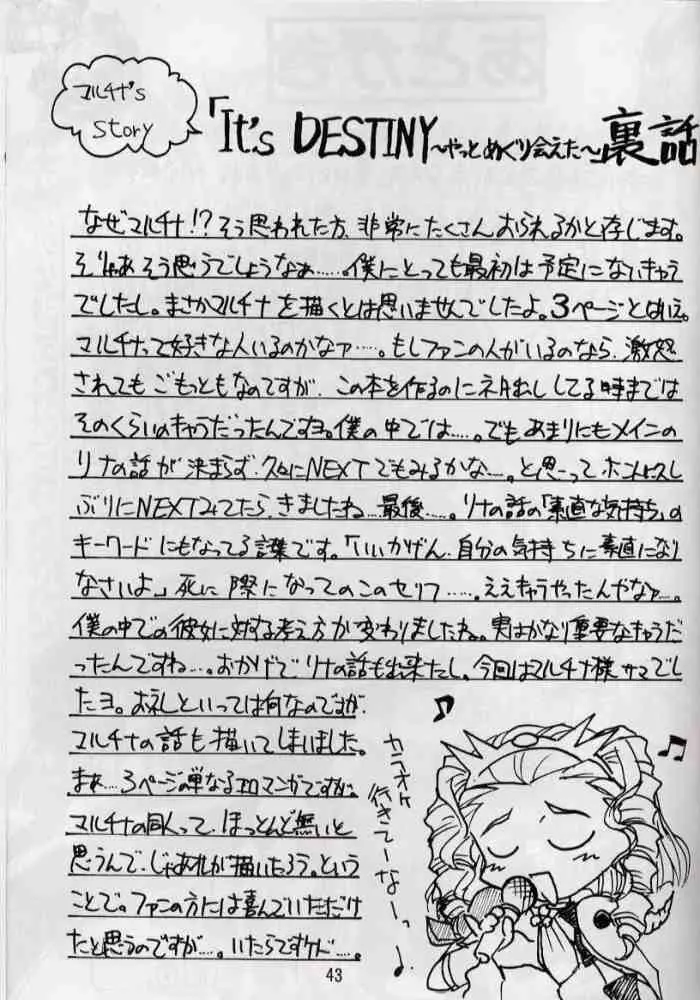 マルチナ's
story
「It's DESTINY～やっとめぐり会えた～」裏話
なぜマルチナ!?そう思われた方、非常にたくさんおられるかと存じます。
そりゃあそう思うでしょうなぁ……。僕にとっても最初は予定にないきゃら
でしたし。まさかマルチナを描くとは思いませんでしたよ。3ページとはいえ。
マルチナって好きな人いるのかなァ……。もしファンの人がいるのなら、激怒
されてもごもっともなのですが、この本を作るのにネタ出ししてる時までは
そのくらいのきゃらだったんですヨ。僕の中では……。でもあまりにもメインの
リナの話が決まらず、久々にNEXTでもみるかな……。と思ってホントに久し
ぶりにNEXTみてたら、きましたね…最後……。リナの話の「素直な気持ち」の
キーワードにもなってる言葉です。「いいかげん、自分の気持ちに素直になり
なさいよ」死に際になってのこのセリフ……。ええきゃらやったんやなァ…。
僕の中での彼女に対する考え方が変わりましたね。実はかなり重要なきゃらだ
ったんですね…。おかげでリナの話も出来たし。今回はマルチナ様サマでし
たヨ。お礼といっては何なのですが、
マルチナの話も描いてしまいました。
まぁ…3ページの単なるエロマンガですが。
マルチナの同人って、ほっとんど無いと
思うんで、じゃあオレが描いたろう。という
ことで。ファンの方には喜んでいただけ
たと思うのですが……。いたらですケド……。
カラオケ
行きてーなーっ
43